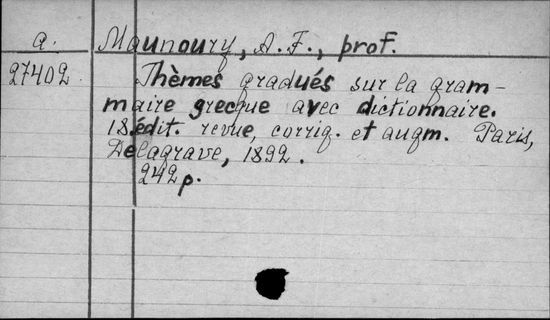 a. Maunoury, A. F., prof.
27402 Thèmes gradués sur la gram-
maire grecque avec dictionnaire.
18.édit. revue, corrig. et augm. Paris,
Delagrave, 1892.
242 p.